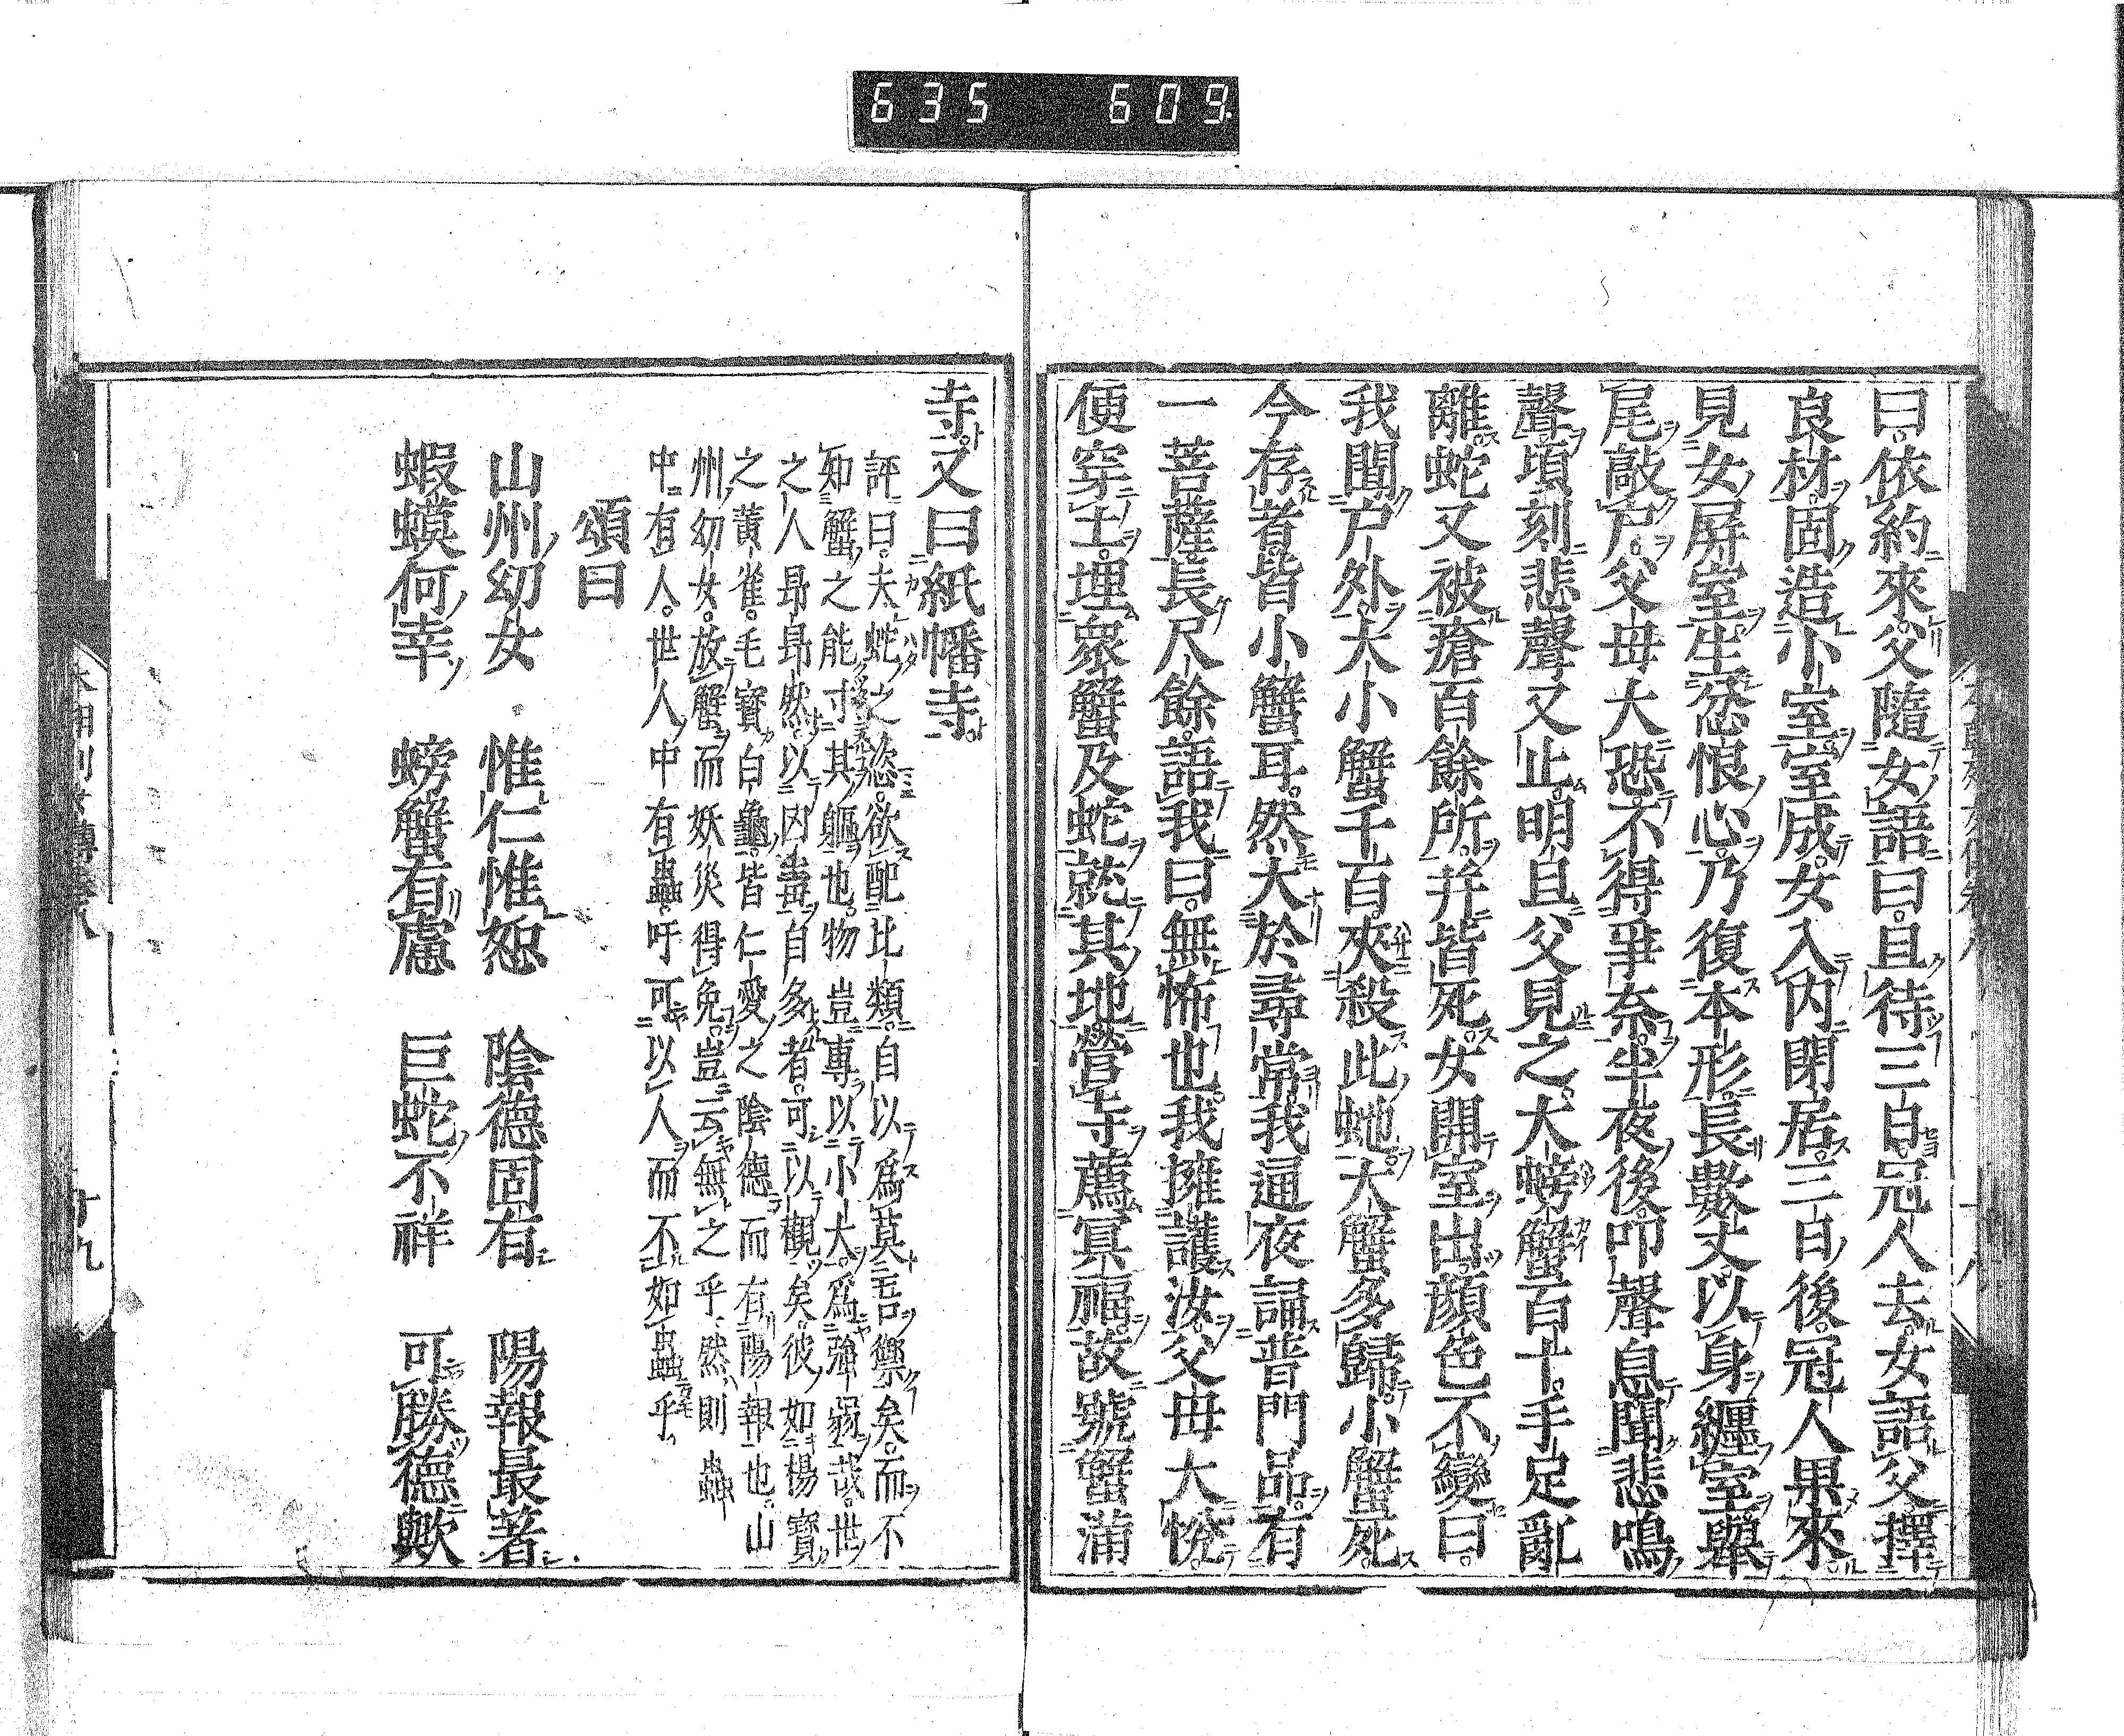 635 609
曰。依約來父隨女語曰。且待三日。冠人去。女語父擇
良材固造小室室成。女入內閉居。三日後。冠人果來
見女屏室生忿恨心。乃復本形。長數丈以身纏室舉
尾敲戶。父母大恐。不得爭奈。半夜後。叩聲息聞悲鳴
聲。頃刻悲聲又止。明旦父見之。大螃蟹百十。手足亂
離。蛇又被瘡百餘所。并皆死。女開室出。顏色不變曰。
我聞戶外。大小蟹千百。夾殺此虵。大蟹多歸。小蟹死。
今存者。皆小蟹耳。然大於尋常。我通夜誦普門品。有
一菩薩。長尺餘。語我曰。無怖也。我擁護汝。父母大悅。
便穿土。埋衆蟹及蛇。就其地營寺薦冥福。故號蟹蒲
寺。又曰紙幡寺。
評曰。夫蛇之恣。欲配比類。自以爲莫吾禦矣。而不
知蟹之能寸其軀也。物豈專以小大。爲強弱哉。世
之人昻昻然。以凶毒自多者。可以觀矣。彼如楊寶
之黃雀。毛寶白龜。皆仁愛之陰德而有陽報也。山
州幼女。放蟹而妖災得免。豈云無之乎。然則蟲
中有人。世人中有蟲。吁可以人而不如蟲乎。
頌曰
山州幼女 惟仁惟恕 陰德固有 陽報最著
蝦蟆何幸 螃蟹有慮 巨蛇不祥 可勝德歟
十九